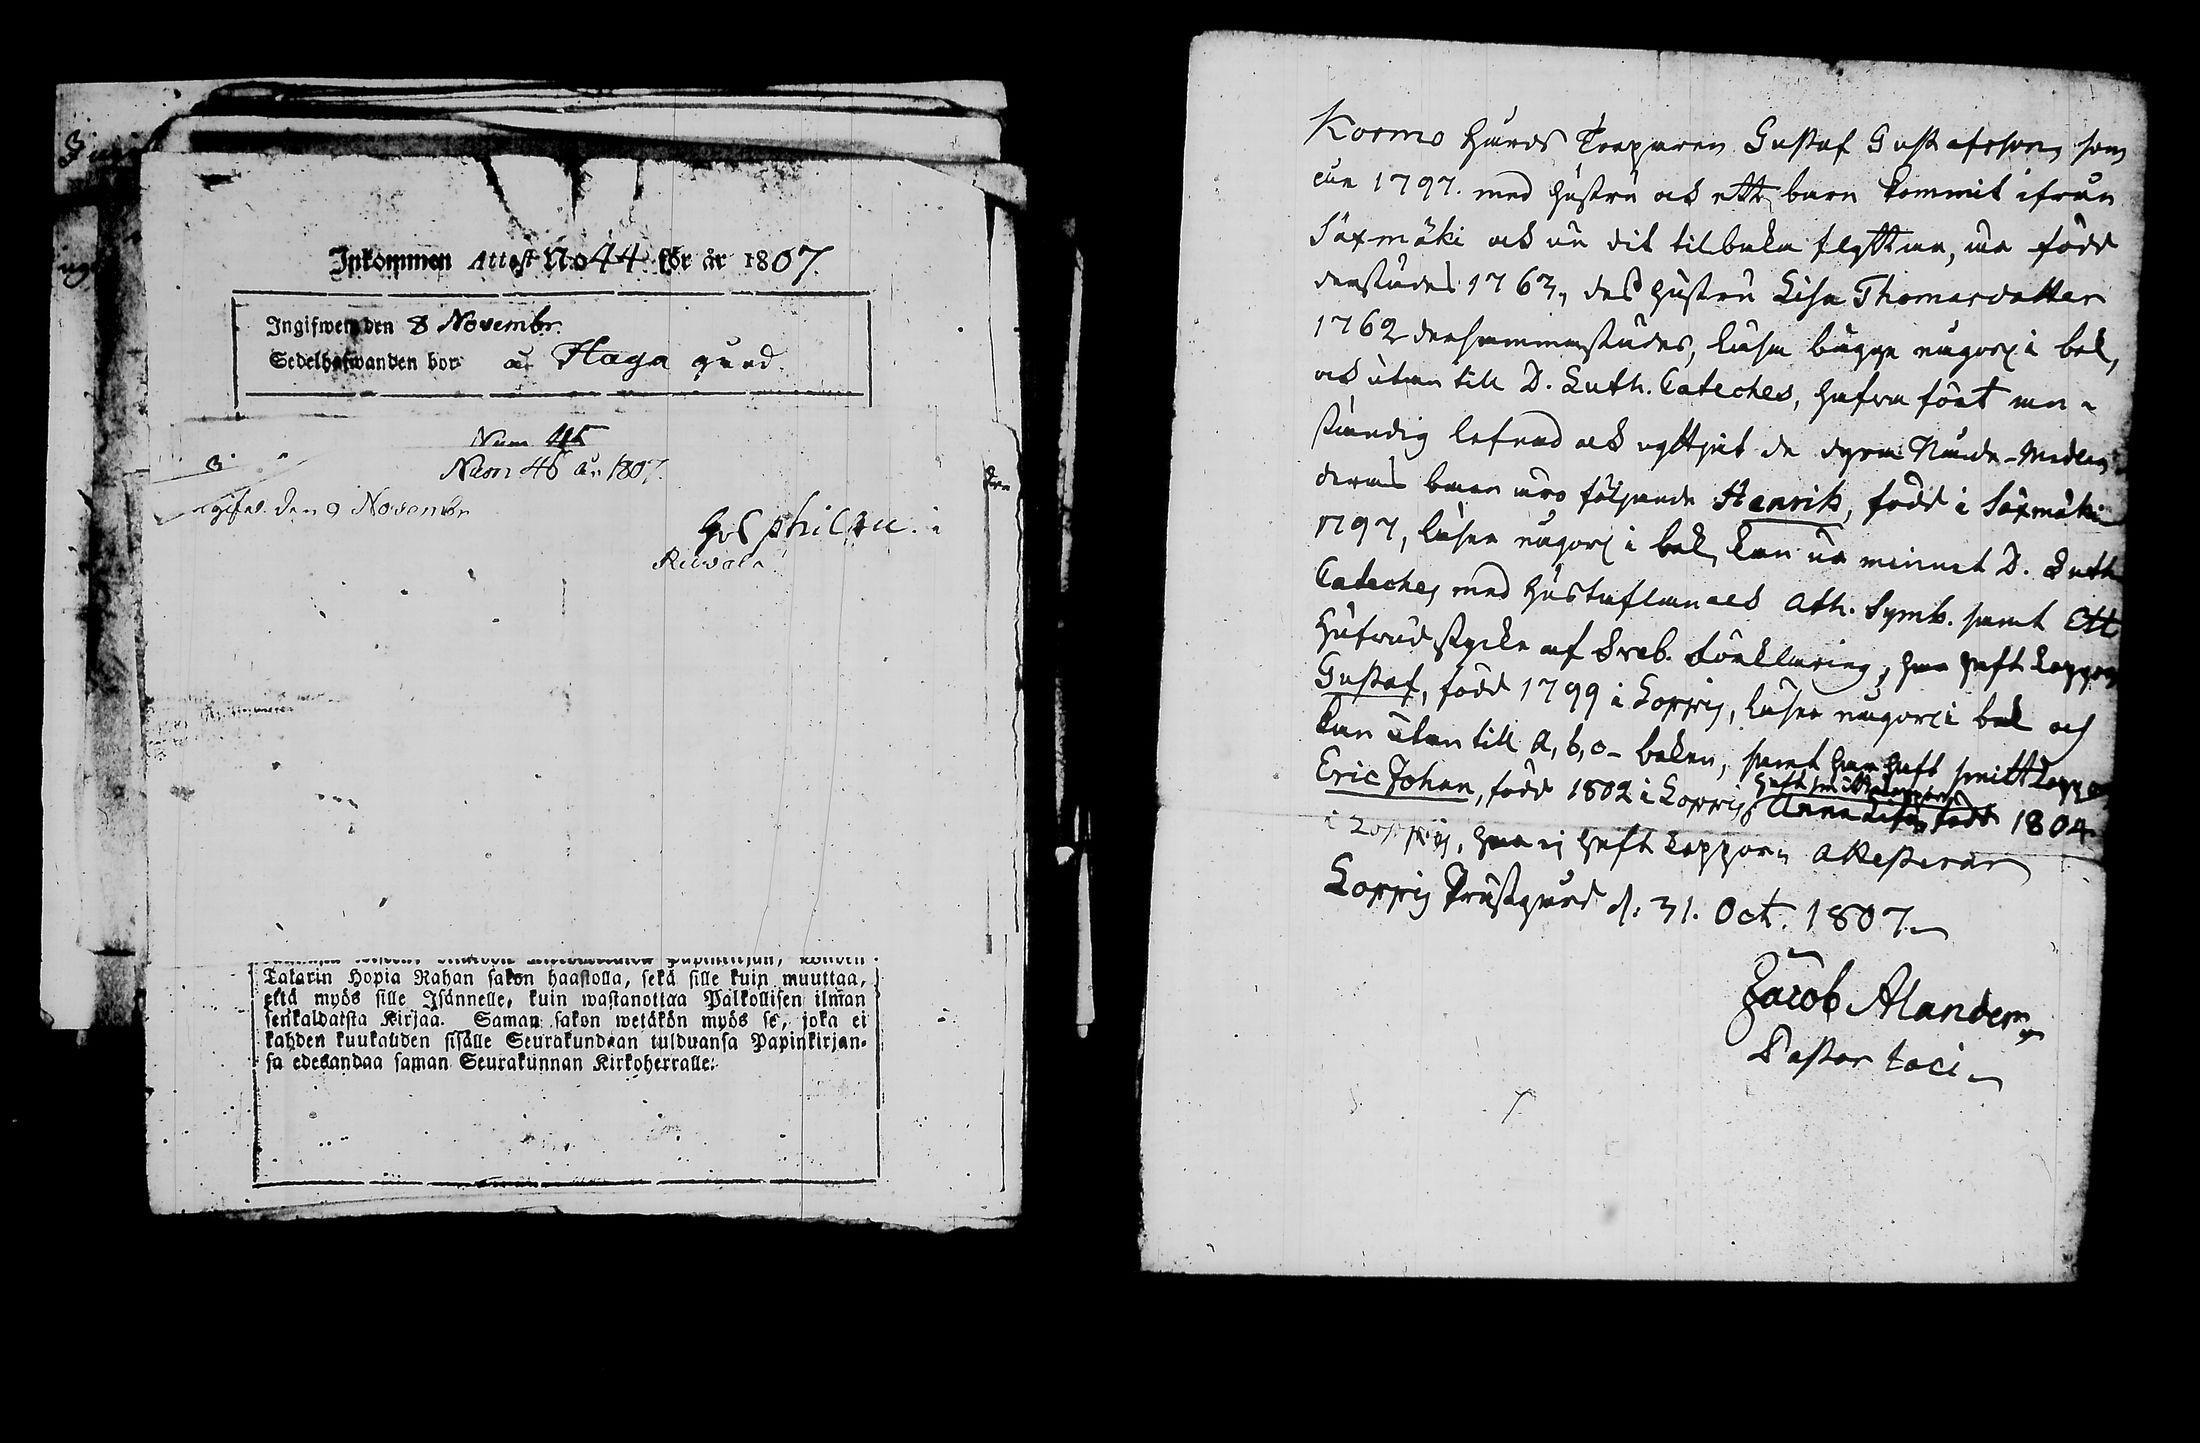 Inkommen Attest No 44 för år 1807.
Ingifwen den 8 Novembr.
Sedelhafwanden bor å Haga gård.
Num 45
Num 46 år 1807.
den 9 Novembr
hos
i
Talarin Hopia Rahan sakon haastolla, sekä sille kuin muuttaa,
että myös sille Isännelle, kuin wastanottaa Palkollisen ilman
senkaldaista Kirjaa. Saman sakon wetäkön myös se, joka ei
kahden kuukauden sisälle Seurakundaan tulduansa Papinkirjan-
sa edesandaa saman Seurakunnan Kirkoherralle.
Kormo Gårds Torparen Gustaf Gustafsson, som
år 1797. med hustru och ett barn kommit ifrån
Säxmäki och nu dit tilbaka flyttar, är född
derstädes 1763, des hustru Lisa Thomasdotter
1762 dersammastädes, läsa bägge någorl. i bok,
och utan till D. Luth. Cateches, hafva fört an-
ständig lefnad och nyttjat de dyra Nåde-Medlen,
deras barn äro följande Henrik, född i Säxmäki
1797, läser någorl. i bok, kan ur minnet D. Luth
Cateches, med Hustaflan och Ath. Symb. samt Ett
Hufvudstycke af Sveb. Förklaring, har haft koppor,
Gustaf, född 1799 i Loppis, läser någorl. i bok och
kan utan till A, b, c- boken, samt har haft smittkoppor
Eric Johan, född 1802 i Loppis, haft smittkoppor, Anna Lisa, född 1804
i Loppis, har ej haft koppor, Attesterar
Loppis Prästgård d. 31. Oct. 1807.
Jacob Alander
Pastor loci